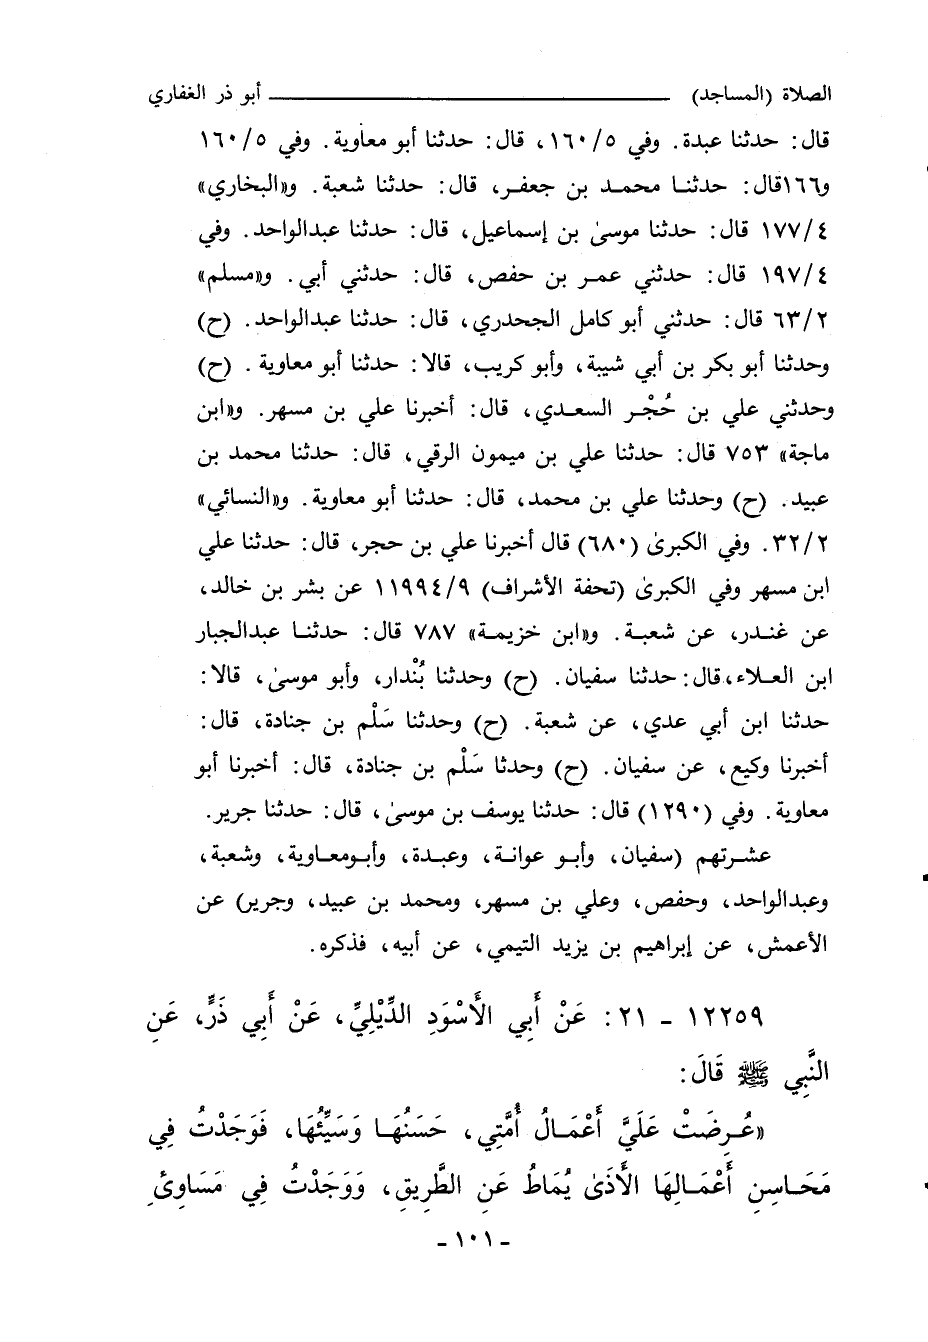 الصلاة (المساجد) ــــــــــــــــــــ أبو ذر الغفاري
قال: حدثنا عبدة. وفي ١٦٠/٥، قال: حدثنا أبو معاوية. وفي ١٦٠/٥
و١٦٦قال: حدثنا محمد بن جعفر، قال: حدثنا شعبة. و«البخاري»
١٧٧/٤ قال: حدثنا موسىٰ بن إسماعيل، قال: حدثنا عبدالواحد. وفي
١٩٧/٤ قال: حدثني عمر بن حفص، قال: حدثني أبي. و«مسلم»
٦٣/٢ قال: حدثني أبو كامل الجحدري، قال: حدثنا عبدالواحد. (ح)
وحدثنا أبو بكر بن أبي شيبة، وأبو كريب، قالا: حدثنا أبو معاوية. (ح)
وحدثني علي بن حُجْر السعدي، قال: أخبرنا علي بن مسهر. و«ابن
ماجة» ٧٥٣ قال: حدثنا علي بن ميمون الرقي، قال: حدثنا محمد بن
عبيد. (ح) وحدثنا علي بن محمد، قال: حدثنا أبو معاوية. و«النسائي»
٣٢/٢. وفي الكبرىٰ (٦٨٠) قال أخبرنا علي بن حجر، قال: حدثنا علي
ابن مسهر وفي الكبرىٰ (تحفة الأشراف) ١١٩٩٤/٩ عن بشر بن خالد،
عن غندر، عن شعبة. و«ابن خزيمة» ٧٨٧ قال: حدثنا عبدالجبار
ابن العلاء، قال: حدثنا سفيان. (ح) وحدثنا بُنْدار، وأبو موسىٰ، قالا:
حدثنا ابن أبي عدي، عن شعبة. (ح) وحدثنا سَلْم بن جنادة، قال:
أخبرنا وكيع، عن سفيان. (ح) وحدثا سَلْم بن جنادة، قال: أخبرنا أبو
معاوية. وفي (١٢٩٠) قال: حدثنا يوسف بن موسىٰ، قال: حدثنا جرير.
عشرتهم (سفيان، وأبو عوانة، وعبدة، وأبومعاوية، وشعبة،
وعبدالواحد، وحفص، وعلي بن مسهر، ومحمد بن عبيد، وجرير) عن
الأعمش، عن إبراهيم بن يزيد التيمي، عن أبيه، فذكره.
١٢٢٥٩ - ٢١: عَنْ أَبِي الأَسْوَدِ الدِّيْلِيِّ، عَنْ أَبِي ذَرٍّ، عَنِ
النَّبِي ﷺ قَالَ:
«عُرِضَتْ عَلَيَّ أَعْمَالُ أُمَّتِي، حَسَنُهَا وَسَيِّئُهَا، فَوَجَدْتُ فِي
مَحَاسِنِ أَعْمَالِهَا الأَذَىٰ يُمَاطُ عَنِ الطَّرِيقِ، وَوَجَدْتُ فِي مَسَاوِئِ
- ١٠١ -